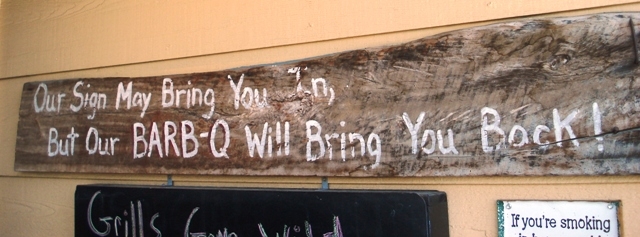 Our Sign May Bring You In,
But Our BARB-Q Will Bring You Back!
Grills Gone Wild
If you're smoking